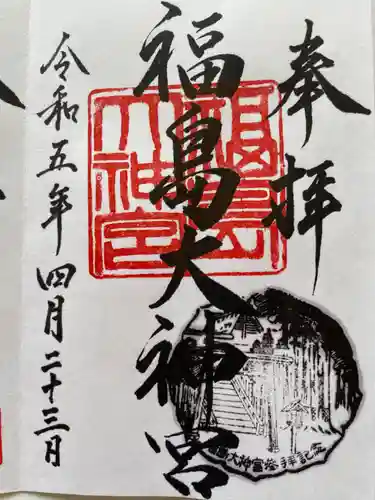 奉拝
福島大神宮
令和五年四月二十三日
福島
大神宮
大神宮参拝記念